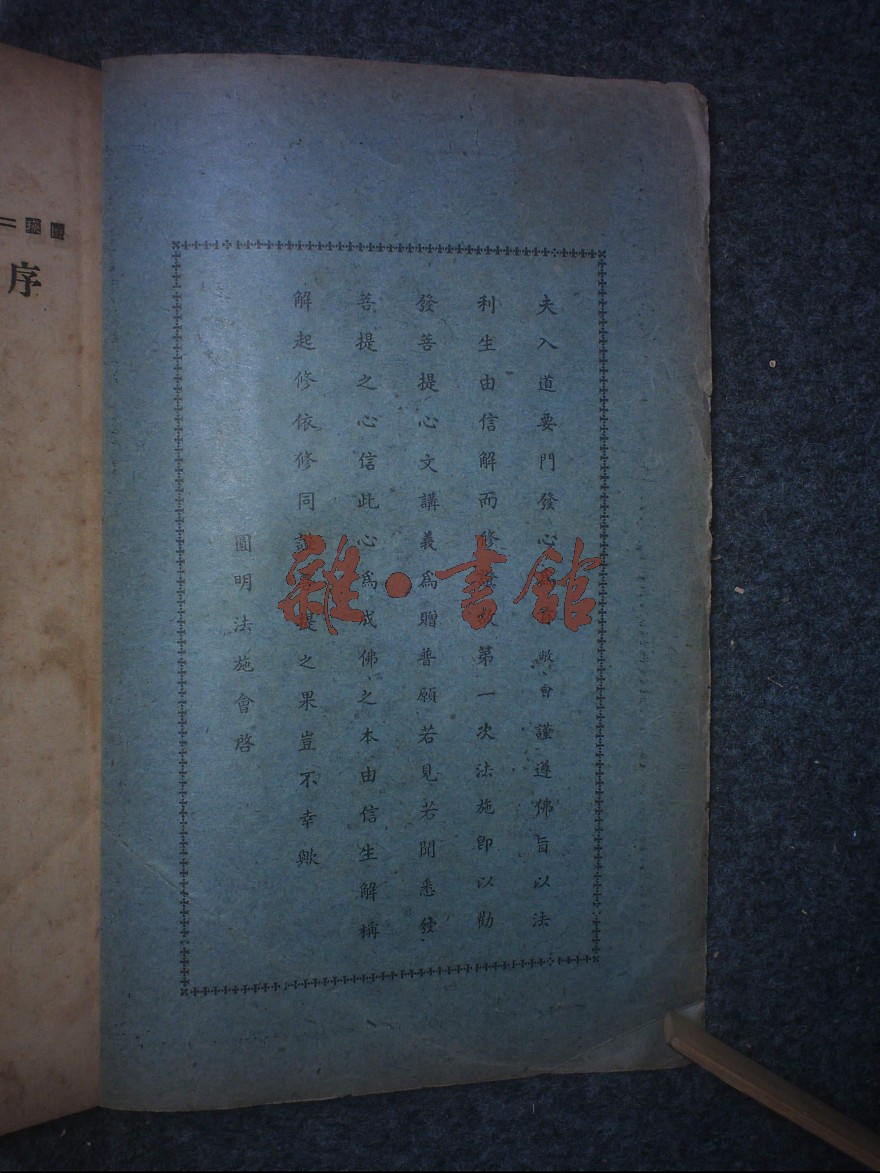 夫入道要門發心敝會謹遵佛旨以法
利生由信解而修第一次法施即以勸
發菩提心文講義為贈普願若見若聞悉發
菩提之心信此心為成佛之本由信生解稱
解起修依修同提之果豈不幸歟
圓明法施會啓
序
雜·書館